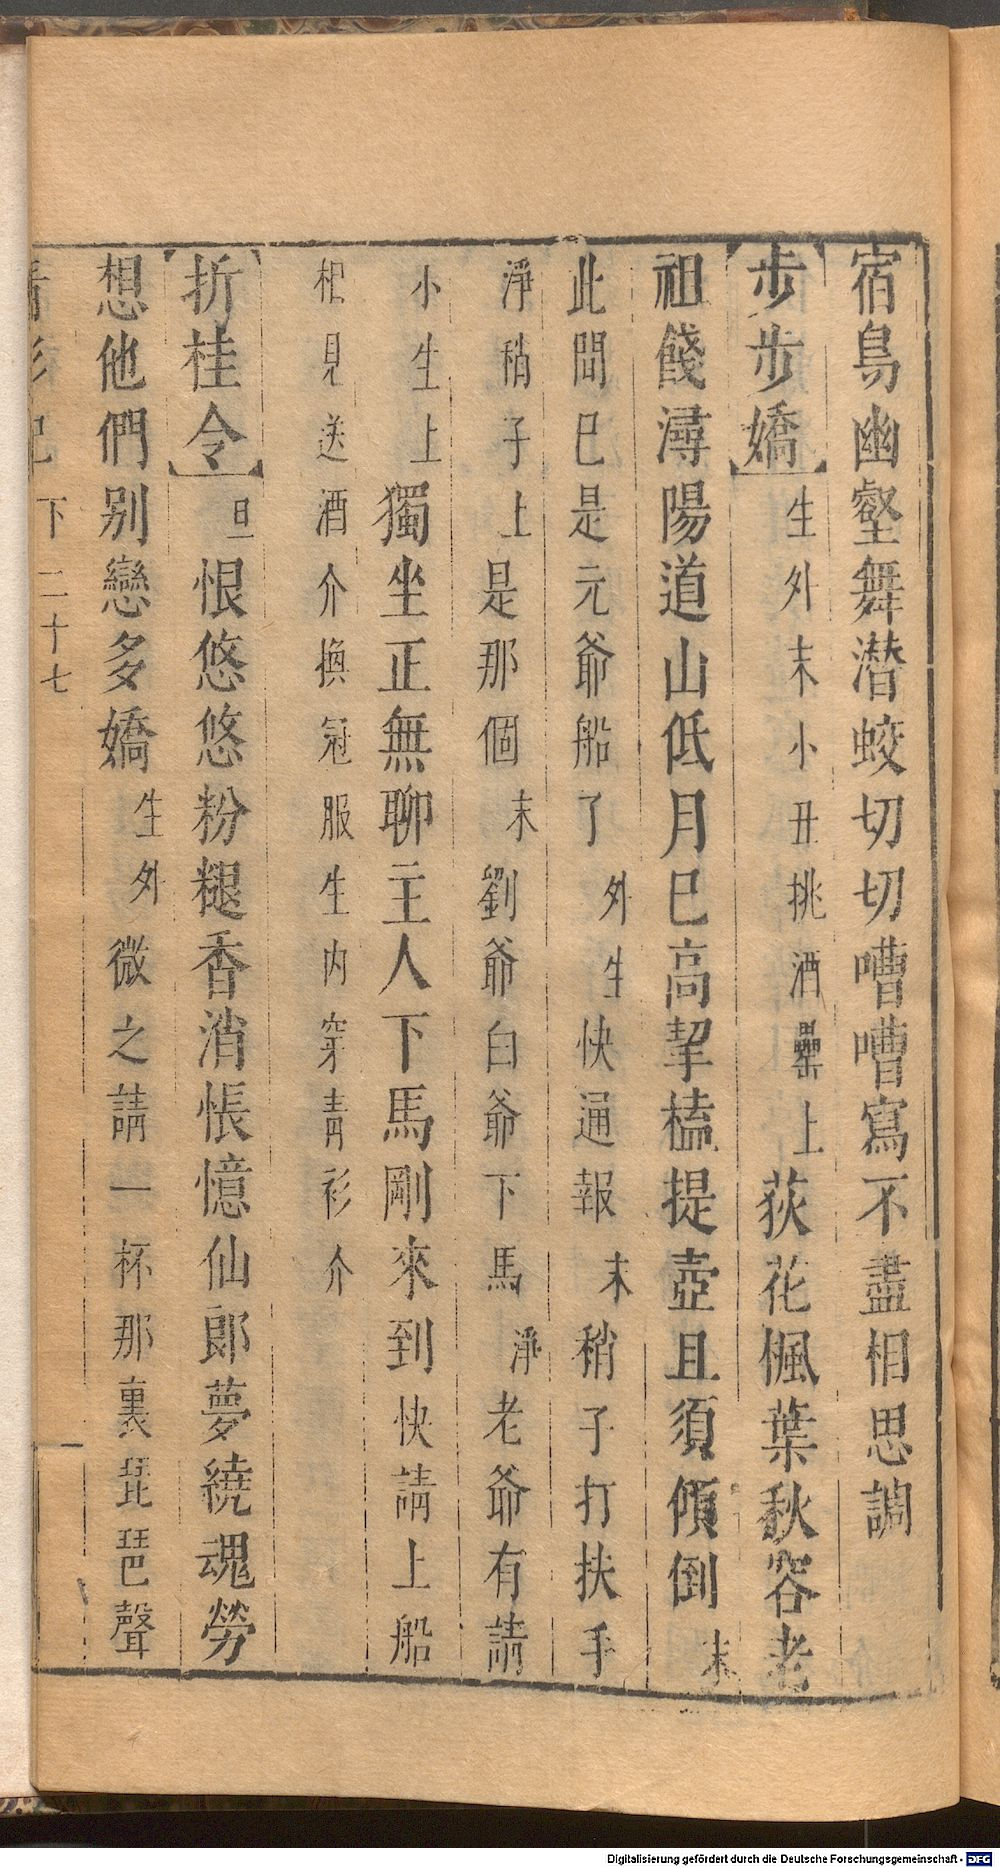 宿鳥幽壑舞潛蛟切切嘈嘈寫不盡相思調
【步步嬌】生外末小丑挑酒罍上荻花楓葉秋容老
祖餞潯陽道山低月巳高挈榼提壺且須傾倒末
此間巳是元爺船了外生快通報末稍子打扶手
淨稍子上是那個末劉爺白爺下馬淨老爺有請
小生上獨坐正無聊主人下馬剛來到快請上船
相見送酒介換冠服生内穿青衫介
【折桂令】旦恨悠悠粉褪香消悵憶仙郎夢繞魂勞
想他們別戀多嬌生外微之請一杯那裏琵琶聲
青衫記 下 二十七
Digitalisierung gefördert durch die Deutsche Forschungsgemeinschaft - DFG